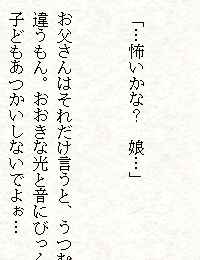 「…怖いかな？　娘…」
お父さんはそれだけ言うと、うつむ
違うもん。おおきな光と音にびっく
子どもあつかいしないでよぉ…